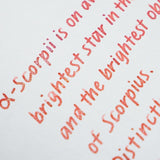 α-Scorpii is on a
brightest star in th
and the brightest ob
of Scorpius.
Distinct